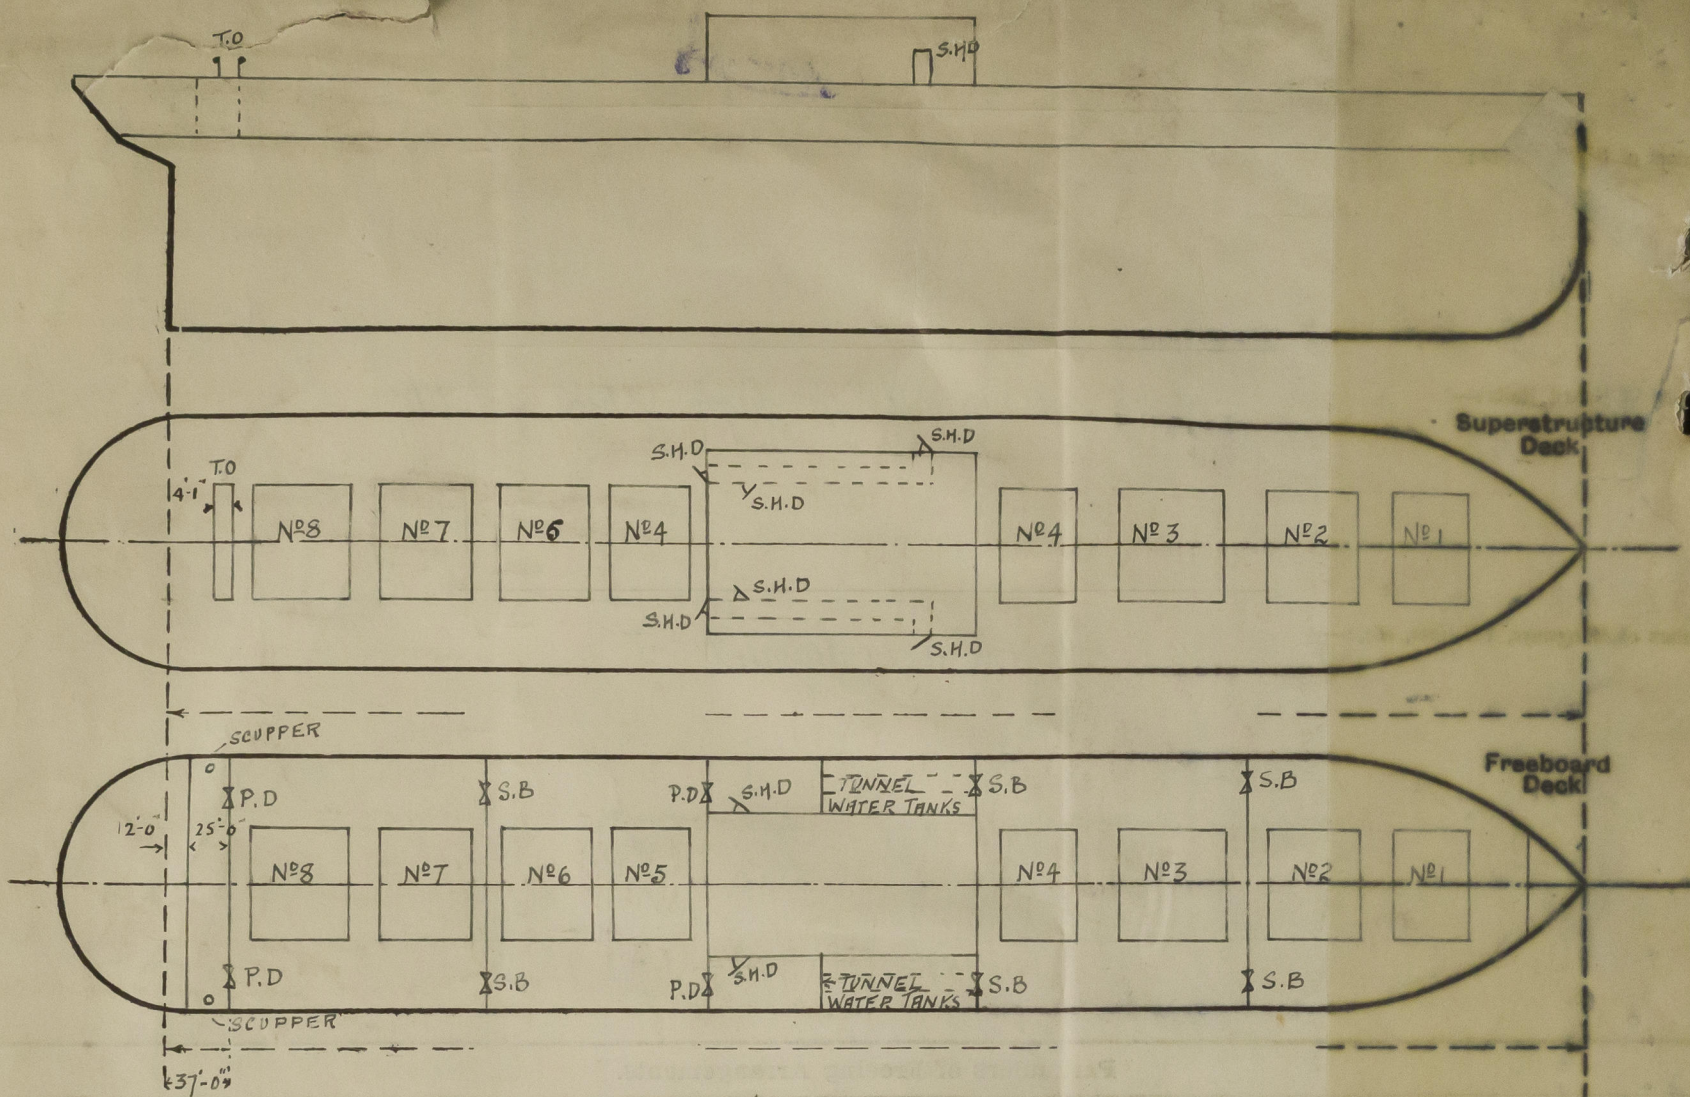 T.O
S.H.D
Superstructure
Deck
S.H.D
S.H.D
T.O
4'-1"
S.H.D
Nº8
Nº7
Nº6
Nº4
Nº4
Nº3
Nº2
Nº1
S.H.D
S.H.D
S.H.D
SCUPPER
Freeboard
Deck
P.D
S.B
P.D
S.H.D
TUNNEL
WATER TANKS
S.B
S.B
12'-0"
25'-0"
Nº8
Nº7
Nº6
Nº5
Nº4
Nº3
Nº2
Nº1
P.D
S.B
P.D
S.H.D
TUNNEL
WATER TANKS
S.B
S.B
SCUPPER
37'-0"